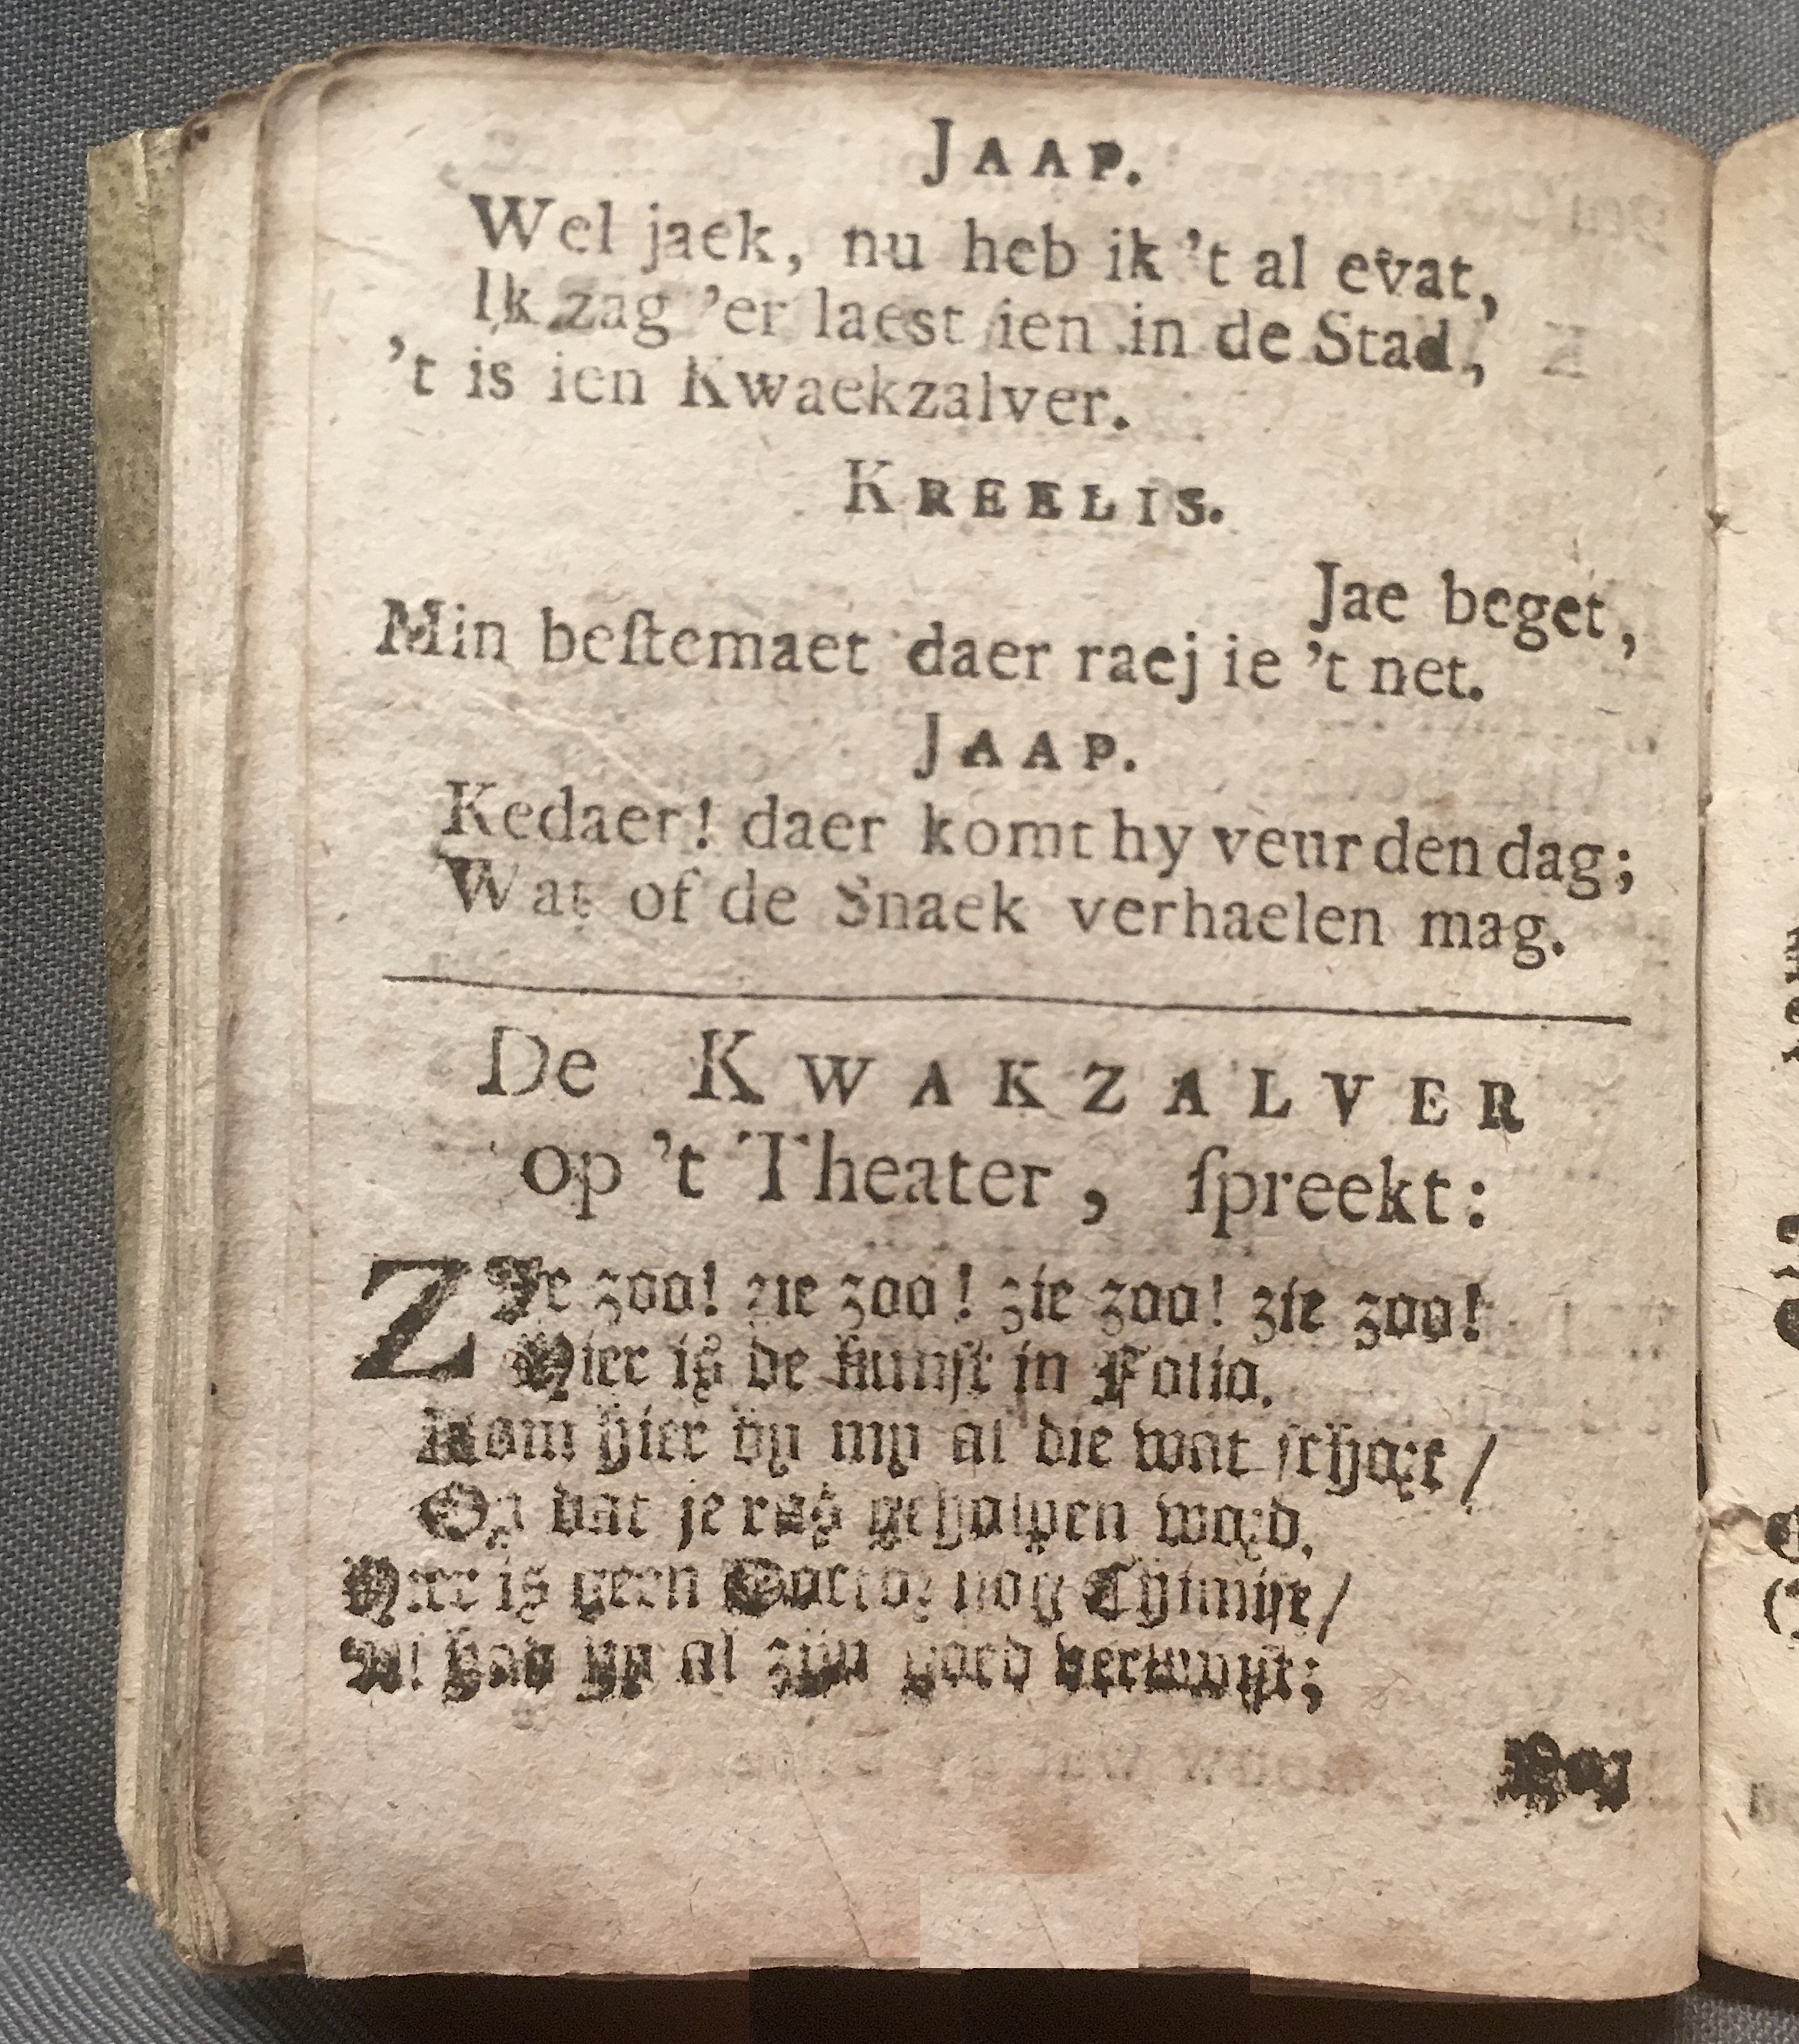 JAAP.
Wel jaek, nu heb ik 't al evat,
Ik zag 'er laest ien in de Stad,
't is ien Kwaekzalver.
KREELIS.
Jae beget,
Min beſtemaet daer raej ie 't net.
JAAP.
Kedaer! daer komt hy veur den dag;
Wat of de Snaek verhaelen mag.
De KWAKZALVER
op 't Theater, ſpreekt:
ZIe zoo! zie zoo! zie zoo! zie zoo!
Hier is de kunſt in Folio.
Kom hier by my al die wat ſchort /
Op dat je ras geholpen word.
Hier is geen Doctor nog Chimiſt /
Al had hy al zijn goed verquiſt;